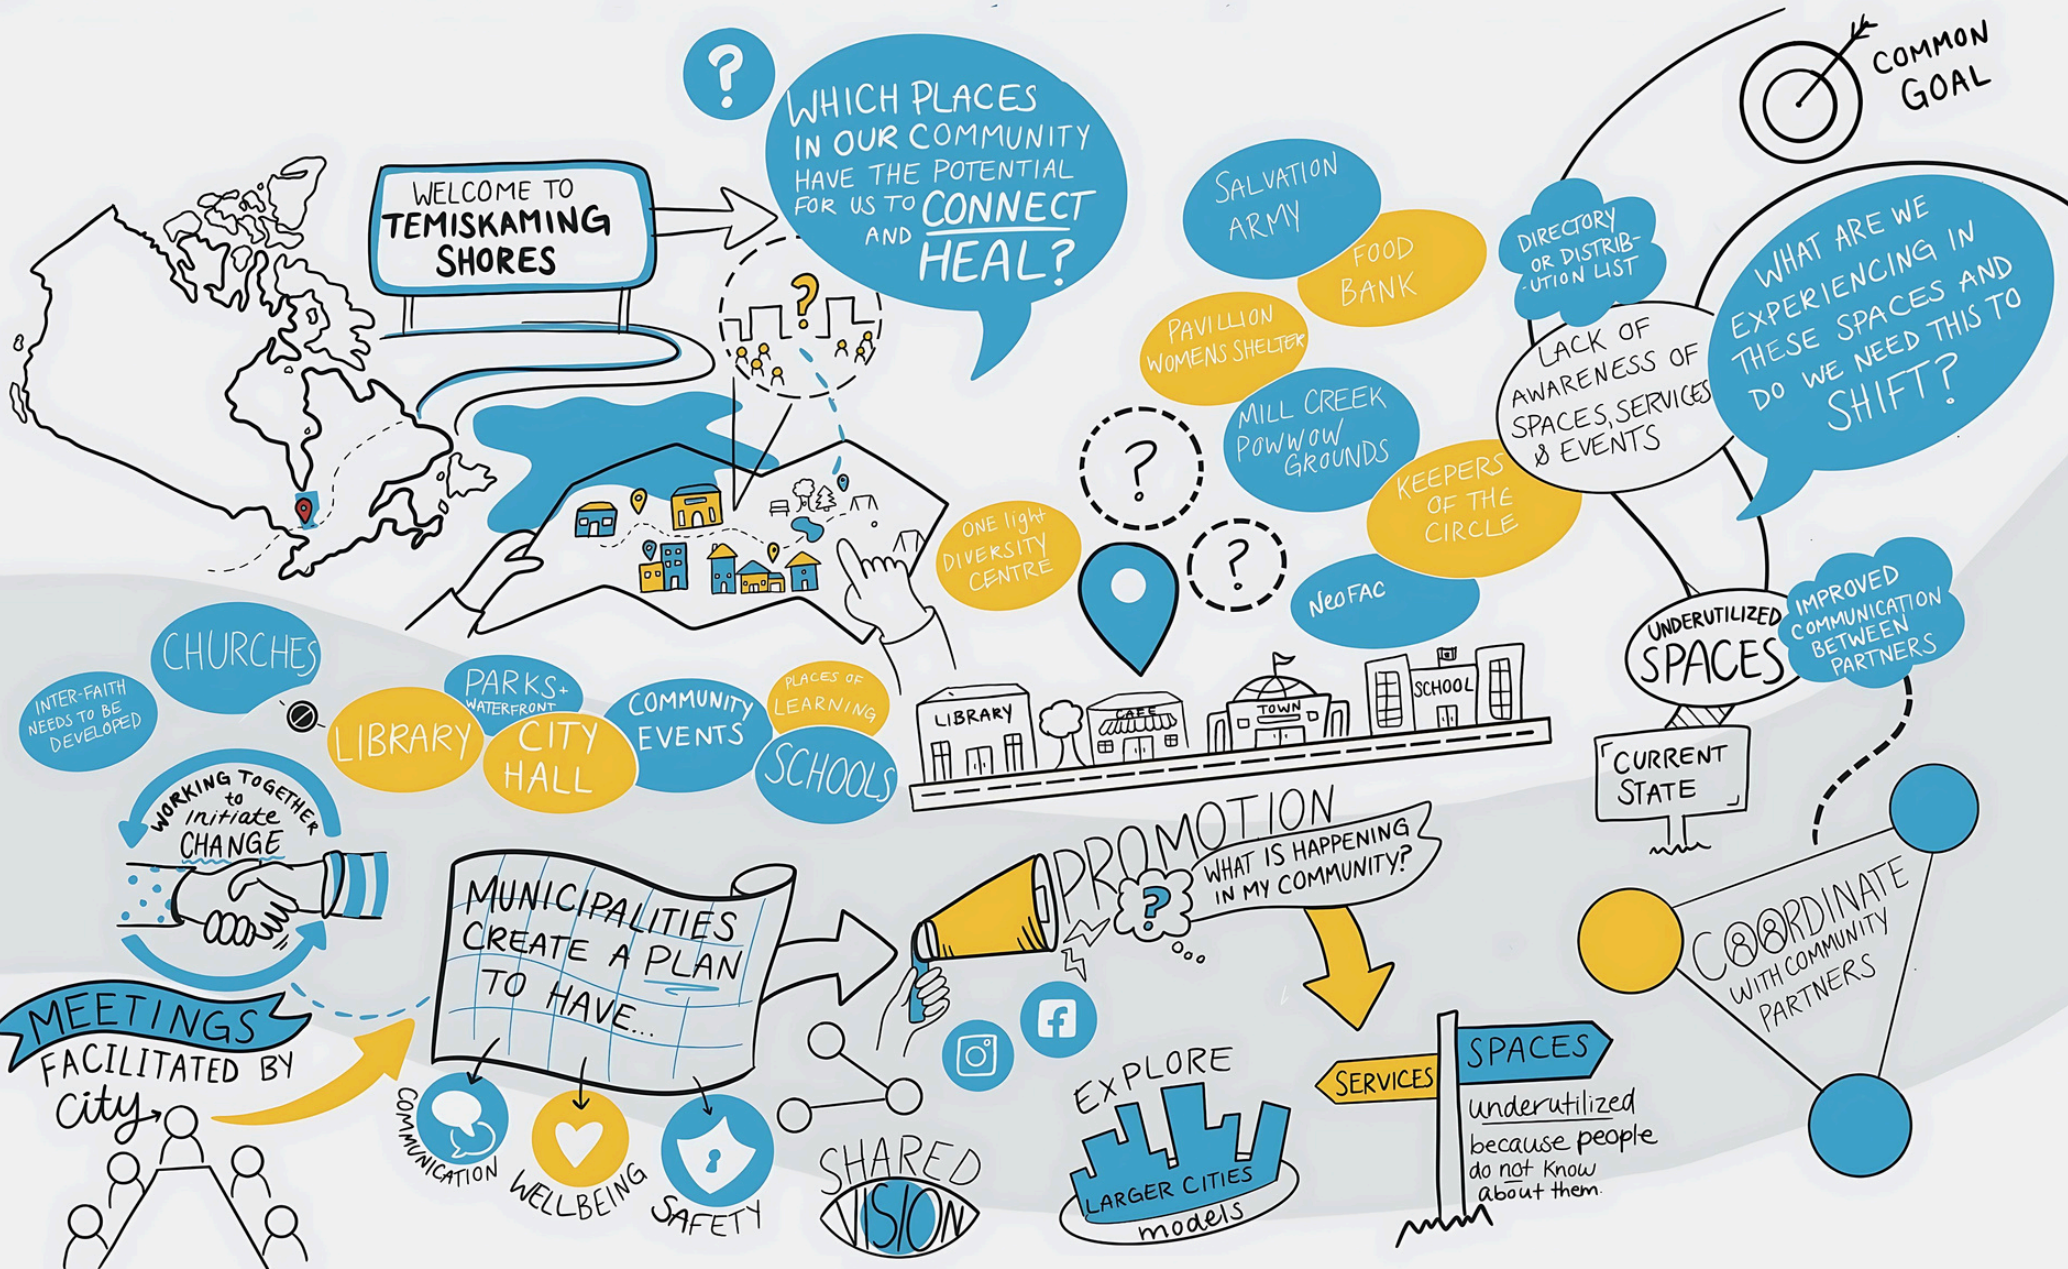 WELCOME TO
TEMISKAMING
SHORES
?
WHICH PLACES
IN OUR COMMUNITY
HAVE THE POTENTIAL
FOR US TO CONNECT
AND
HEAL?
?
SALVATION
ARMY
FOOD
BANK
PAVILLION
WOMENS SHELTER
MILL CREEK
POWWOW
GROUNDS
KEEPERS
OF THE
CIRCLE
?
?
ONE light
DIVERSITY
CENTRE
NEOFAC
COMMON
GOAL
DIRECTORY
OR DISTRIB-
-UTION LIST
LACK OF
AWARENESS OF
SPACES, SERVICES
& EVENTS
WHAT ARE WE
EXPERIENCING IN
THESE SPACES AND
DO WE NEED THIS TO
SHIFT?
UNDERUTILIZED
SPACES
IMPROVED
COMMUNICATION
BETWEEN
PARTNERS
CURRENT
STATE
CHURCHES
INTER-FAITH
NEEDS TO BE
DEVELOPED
LIBRARY
PARKS+
WATERFRONT
CITY
HALL
COMMUNITY
EVENTS
PLACES OF
LEARNING
SCHOOLS
LIBRARY
CAFE
TOWN
SCHOOL
WORKING TOGETHER
to
initiate
CHANGE
MEETINGS
FACILITATED BY
City
MUNICIPALITIES
CREATE A PLAN
TO HAVE...
COMMUNICATION
WELLBEING
SAFETY
PROMOTION
?
WHAT IS HAPPENING
IN MY COMMUNITY?
f
SHARED
VISION
EXPLORE
LARGER CITIES
models
SERVICES
SPACES
underutilized
because people
do not know
about them.
COORDINATE
WITH COMMUNITY
PARTNERS